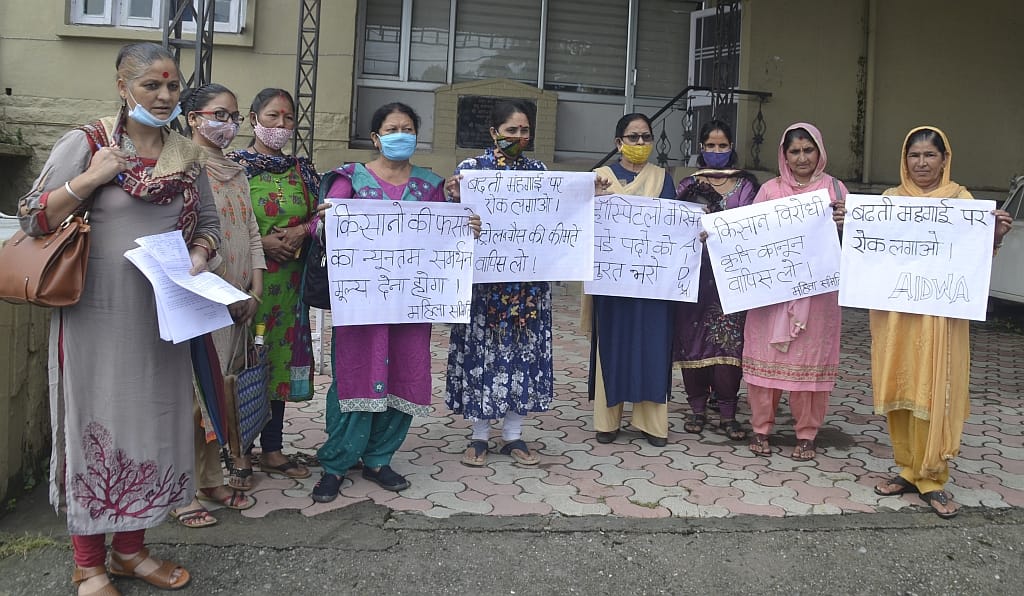 किसानो की फसल
का न्यूनतम समर्थन
मूल्य देना होगा।
महिला समिति
बढती महंगाई पर
रोक लगाओ।
पेट्रोल गैस की कीमते
वापिस लो!
हॉस्पिटलो मे
पडे पदों को
तुरत भरो
किसान विरोधी
कृषि कानून
वापिस लो।
महिला समिति
बढती महगाई पर
रोक लगाओ।
AIDWA